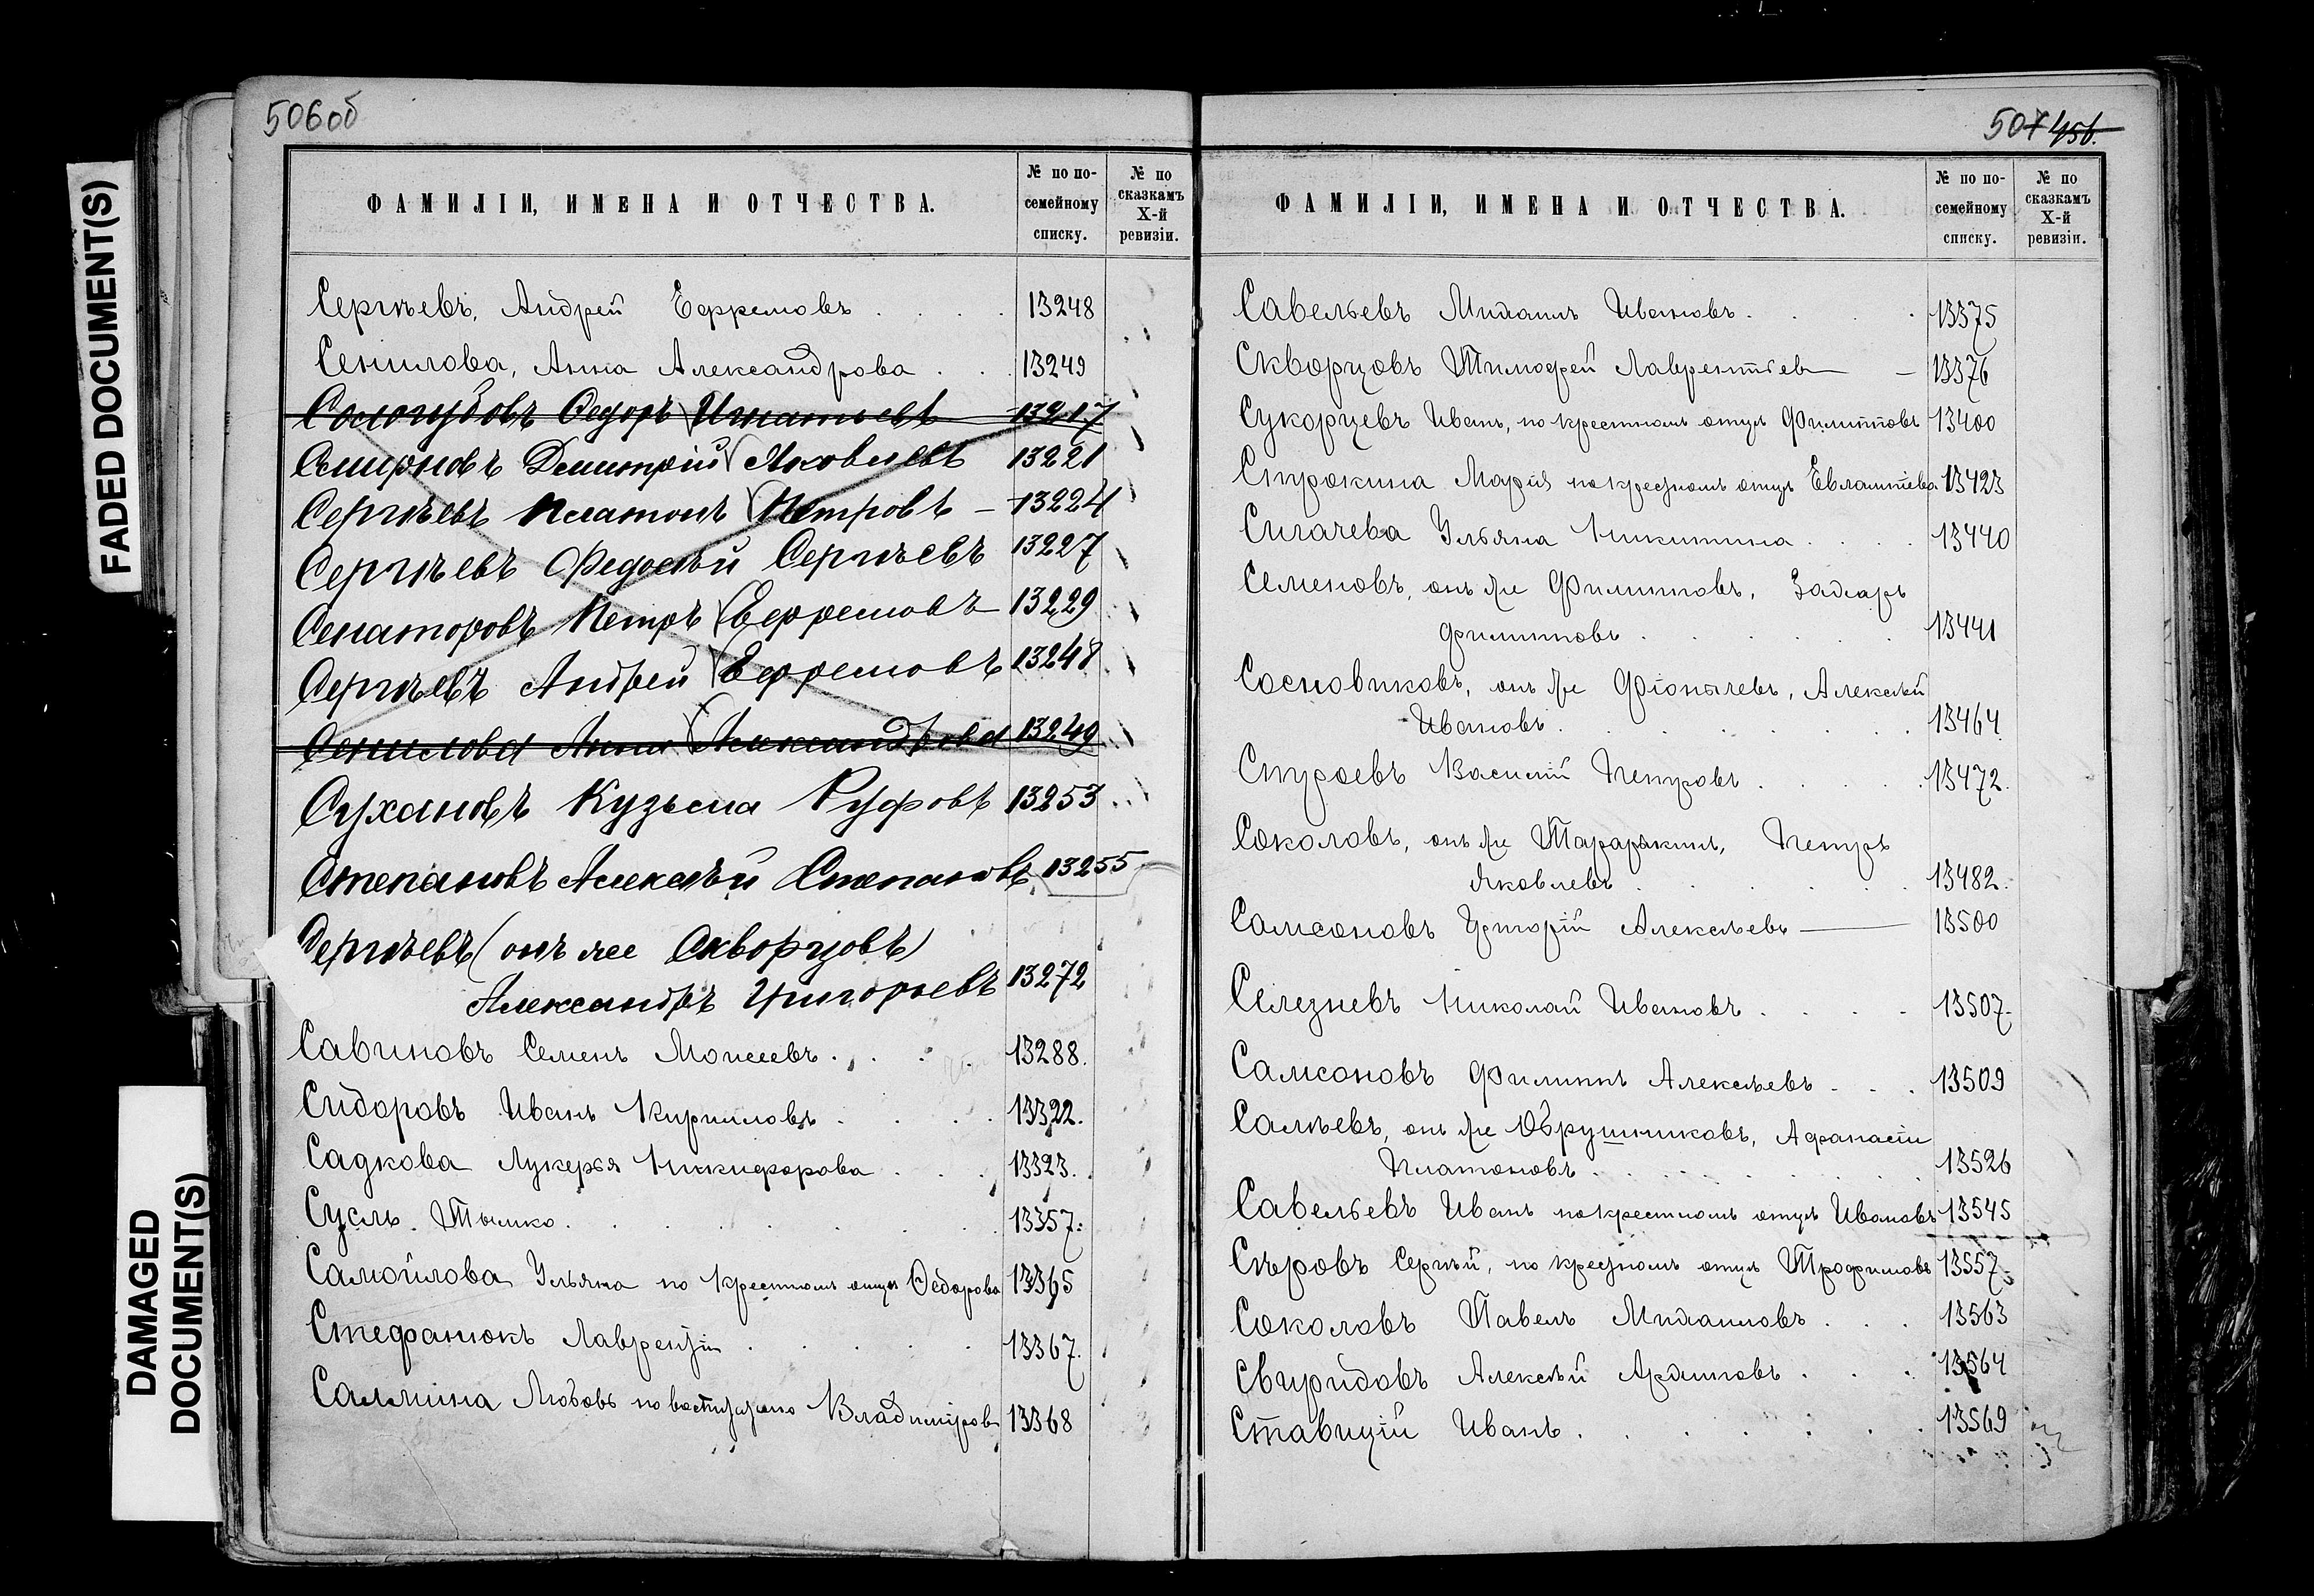 FADED DOCUMENT(S)
DAMAGED
DOCUMENT(S)
506об
ФАМИЛІИ, ИМЕНА И ОТЧЕСТВА.
№ по по-
семейному
списку.
№ по
сказкамъ
X-й
ревизіи.
Сергѣевъ, Андрей Ефремовъ . . . . 13248
Сенилова, Анна Александрова . . . 13249
Сологубовъ Федоръ Игнатьевъ 13217
Смирновъ Дмитрій Яковлевъ 13221
Сергѣевъ Платонъ Петровъ – 13224
Сергѣевъ Федосѣй Сергѣевъ 13227
Сенаторовъ Петръ Ефремовъ 13229
Сергѣевъ Андрей Ефремовъ 13248
Сенилова Анна Александрова 13249
Сухановъ Кузьма Руфовъ 13253
Степановъ Алексѣй Степановъ 13255
Сергѣевъ (онъ же Скворцовъ)
Александръ Григорьевъ 13272
Савиновъ Семенъ Моисеевъ . . . . 13288.
Сидоровъ Иванъ Кириловъ . . . . 13322.
Садкова Лукерья Никифорова . . . 13323.
Сусль Тымко . . . . . . . 13357.
Самойлова Ульяна по крестному отцу Ѳедорова 13365
Стефанюкъ Лаврентій . . . . . 13367.
Салмина Любовь по воспитанію Владимірова 13368
507 456.
ФАМИЛІИ, ИМЕНА И ОТЧЕСТВА.
№ по по-
семейному
списку.
№ по
сказкамъ
X-й
ревизіи.
Савельевъ Михаилъ Ивановъ . . . . 13375
Скворцовъ Тимофей Лаврентьевъ — 13376
Сукорцевъ Иванъ, по крестному отцу Филипповъ 13400
Строкина Марія по крестному отцу Евлампіева 13423
Сигачева Ульяна Никитина . . . . 13440
Семеновъ, онъ же Филипповъ, Захаръ
Филипповъ . . . . . . 13441
Сосновиковъ, онъ же Фіонычевъ, Алексѣй
Ивановъ . . . . . . . 13464
Стуроевъ Василій Петровъ . . . . . 13472.
Соколовъ, онъ же Тараракинъ, Петръ
Яковлевъ . . . . . . 13482.
Самсоновъ Григорій Алексѣевъ — 13500
Селезневъ Николай Ивановъ . . . . 13507.
Самсоновъ Филиппъ Алексѣевъ . . . 13509
Салѣевъ, онъ же Обрушниковъ, Афанасій
Платоновъ . . . . . . . 13526
Савельевъ Иванъ по крестному отцу Ивановъ 13545
Сѣровъ Сергѣй, по крестному отцу Трофимовъ 13557.
Соколовъ Павелъ Михаиловъ . . . 13563
Свиридовъ Алексѣй Архиповъ . . . 13564
Ставицій Иванъ . . . . . . . 13569